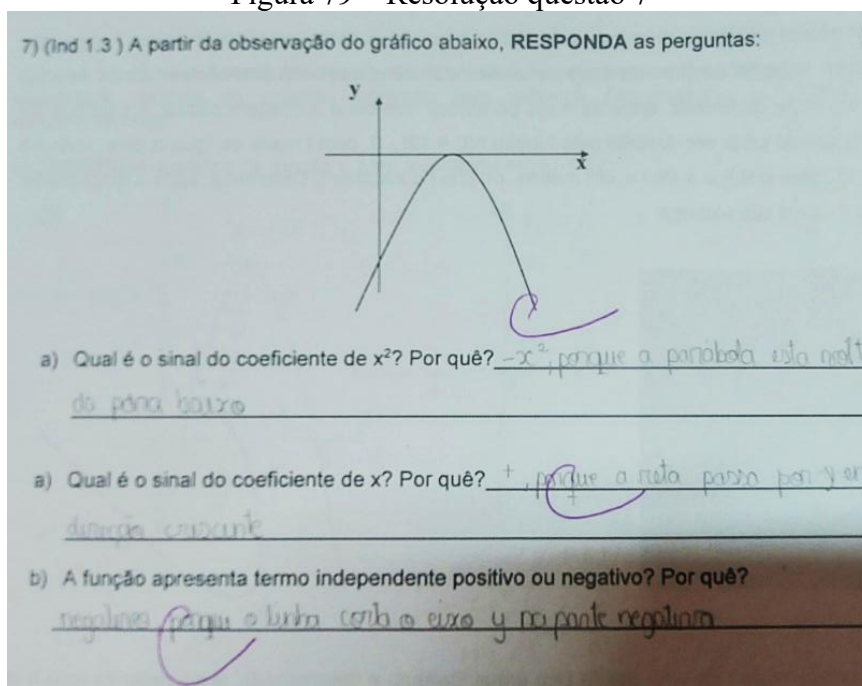 Figura 79 – Resolução questão 7
7) (Ind 1.3 ) A partir da observação do gráfico abaixo, RESPONDA as perguntas:
y
x
a) Qual é o sinal do coeficiente de x²? Por quê? -x², porque a parábola esta
do para baixo
a) Qual é o sinal do coeficiente de x? Por quê? +, porque a reta passa por y em
direção crescente
b) A função apresenta termo independente positivo ou negativo? Por quê?
porque a linha corta o eixo y na parte